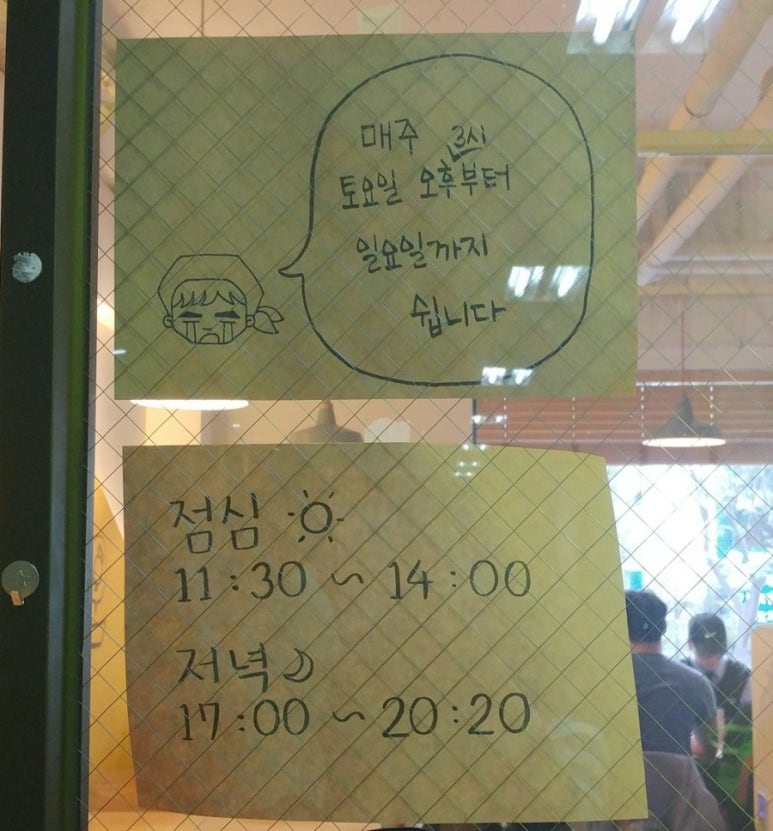 매주 3시
토요일 오후부터
일요일까지
쉽니다
점심
11:30 ~ 14:00
저녁
17:00 ~ 20:20